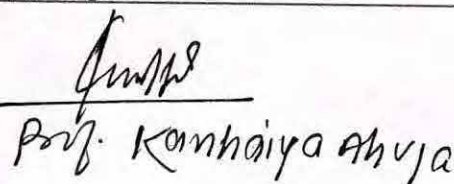 Prof. Kanhaiya Ahuja